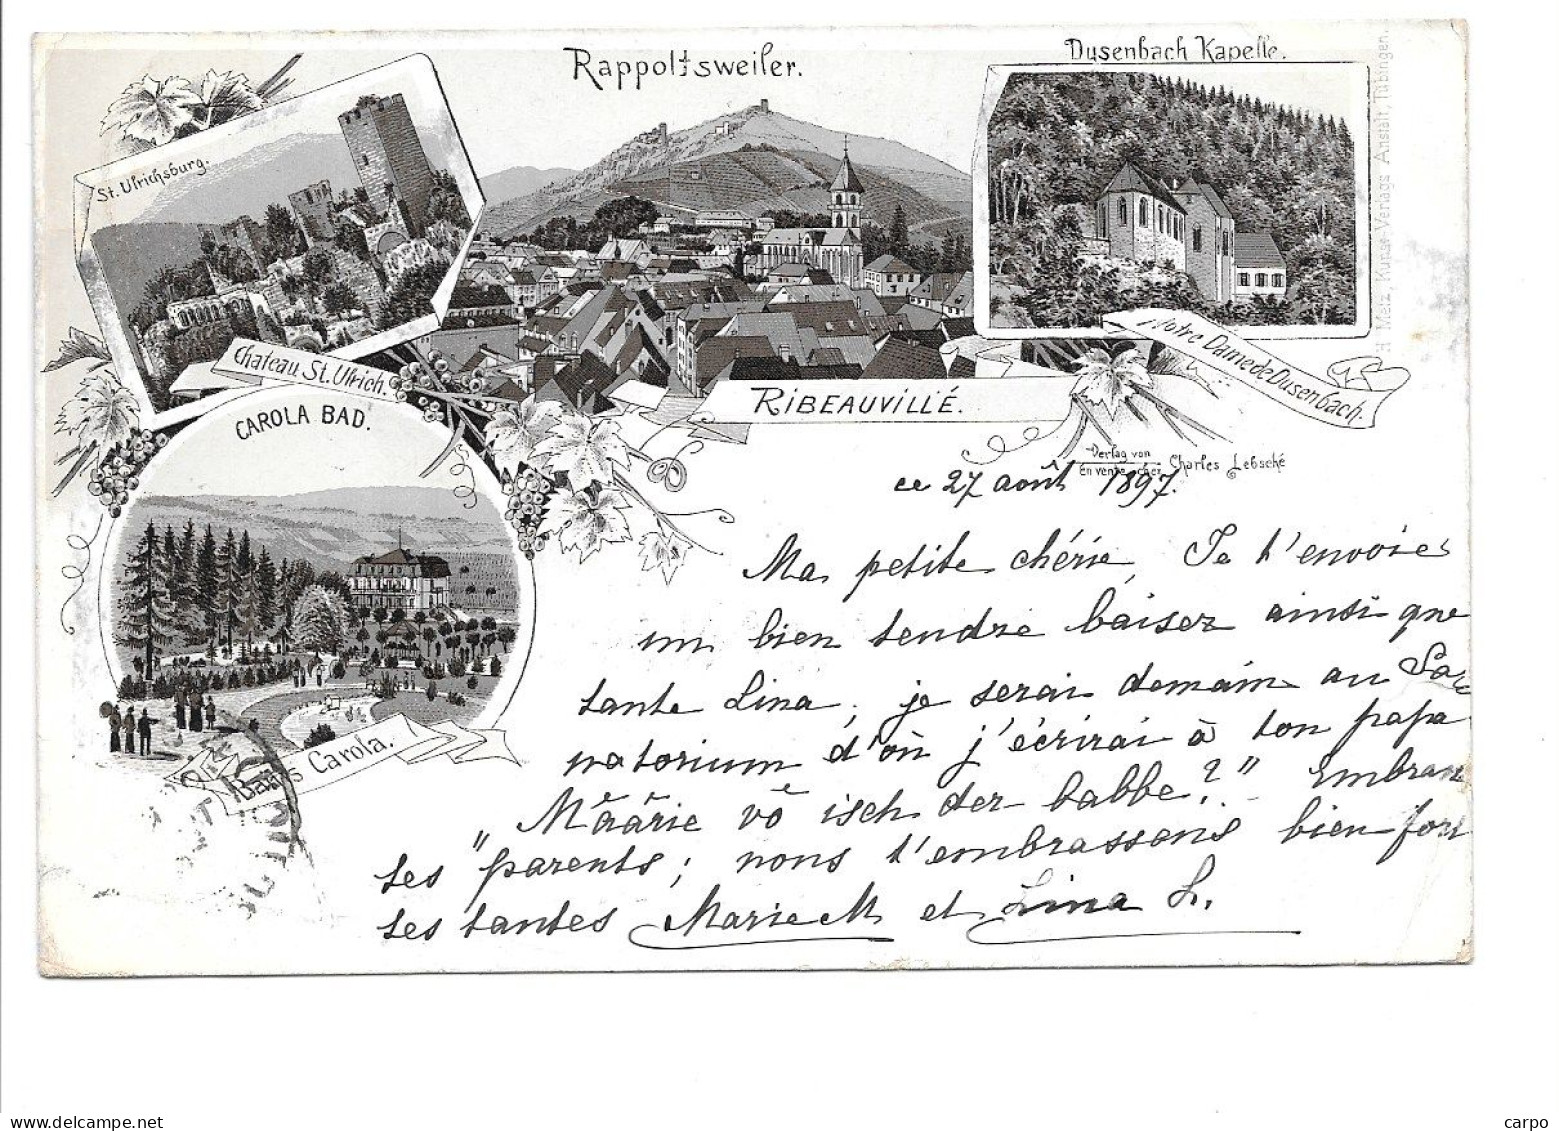 Rappoltsweiler.
Dusenbach Kapelle.
St. Ulrichsburg.
Chateau St. Ulrich.
RIBEAUVILLÉ.
Notre Dame de Dusenbach.
H. Metz, Kunst-Verlags-Anstalt, Tübingen.
CAROLA BAD.
Bains Carola.
Verlag von
En vente chez Charles Lebsché
ce 27 août 1897.
Ma petite chérie, Je t'envoie
un bien tendre baiser ainsi que
tante Lina, je serai demain au Sa
natorium d'où j'écrirai à ton papa
" Määrie vö isch der babbe?" Embran
tes parents; nous t'embrassons bien fort
tes tantes Marie M et Lina L.
carpo